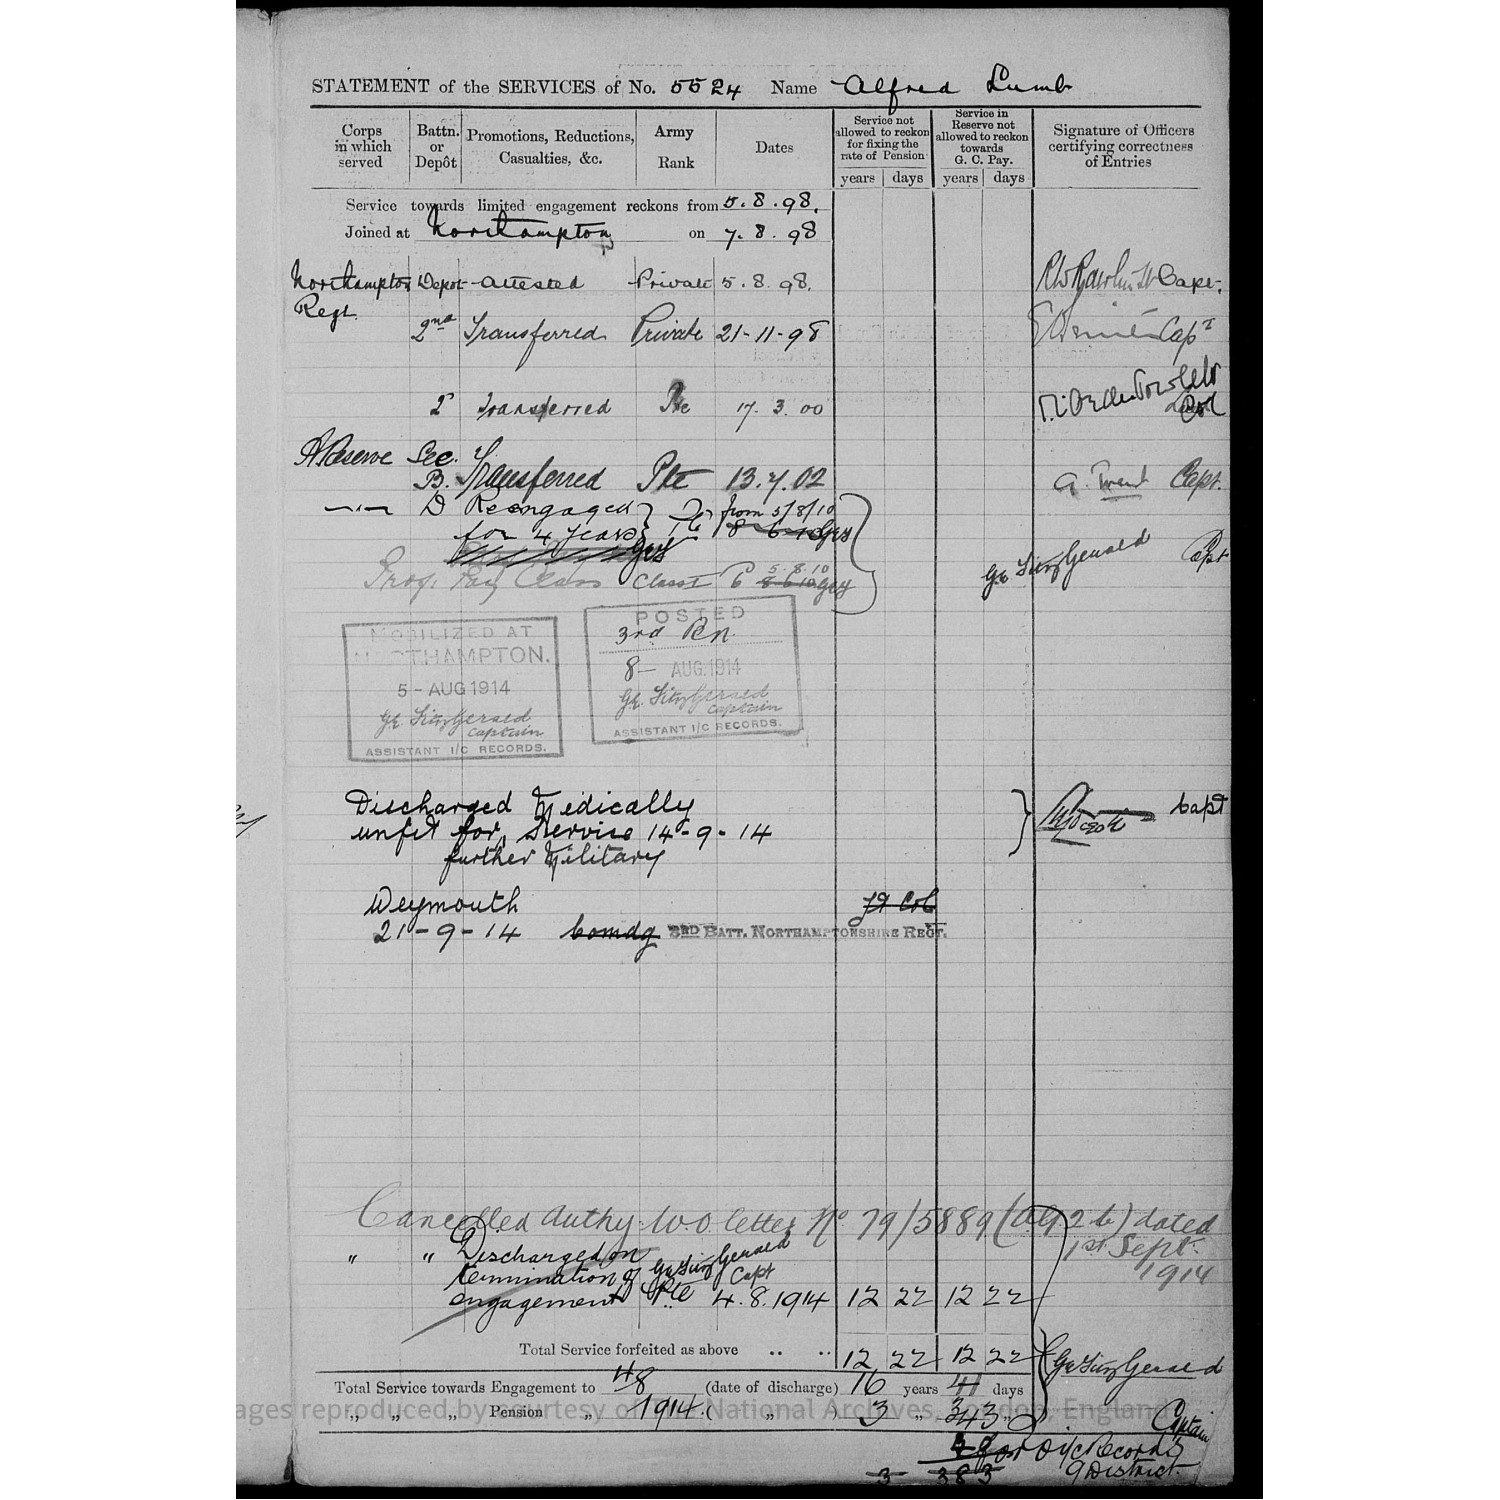 STATEMENT of the SERVICES of No. 5524 Name Alfred Lumb
Corps in which served
Battn. or Depôt
Promotions, Reductions, Casualties, &c.
Army Rank
Dates
Service not allowed to reckon for fixing the rate of Pension
years days
Service in Reserve not allowed to reckon towards G. C. Pay.
years days
Signature of Officers certifying correctness of Entries
Service towards limited engagement reckons from 5.8.98.
Joined at Northampton on 7.8.98
Northampton Depot attested Private 5.8.98. Capt.
Regt.
2nd Transferred Private 21-11-98 Capt
2 Transferred Pte 17.3.00
Col
A Reserve Sec.
B. Transferred Pte 13.7.02 Capt.
D Reengaged from 5/8/10
for 4 years
Ge FitzGerald Capt
Prof. Pay Class Class I 6 5.8.10
MOBILIZED AT
NORTHAMPTON.
5 - AUG 1914
Ge. FitzGerald
Captain
ASSISTANT I/C RECORDS.
POSTED
3rd Bn.
8 - AUG. 1914
Ge. FitzGerald
Captain
ASSISTANT I/C RECORDS.
Discharged Medically
unfit for Service 14-9-14 Capt
further Military
Weymouth Lt Col
21-9-14 Comdg 3RD BATT. NORTHAMPTONSHIRE REGT.
Cancelled Authy W.O. letter No 79/5889 (AG 2 b) dated
1st Sept.
1914
" " Discharged on
termination of Ge FitzGerald Capt
engagement Pte 4.8.1914 12 22 12 22
Total Service forfeited as above .. .. 12 22 12 22
Ge FitzGerald
Total Service towards Engagement to 4/8 (date of discharge) 16 years days
" " " Pension " 1914. ( " ) 3 " 343 "
Captain
for O i/c Records
3 383 9 District.
Images reproduced by courtesy of The National Archives, London, England